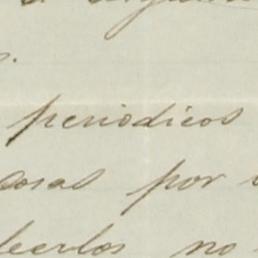 periodicos
cosas por
leerlos no